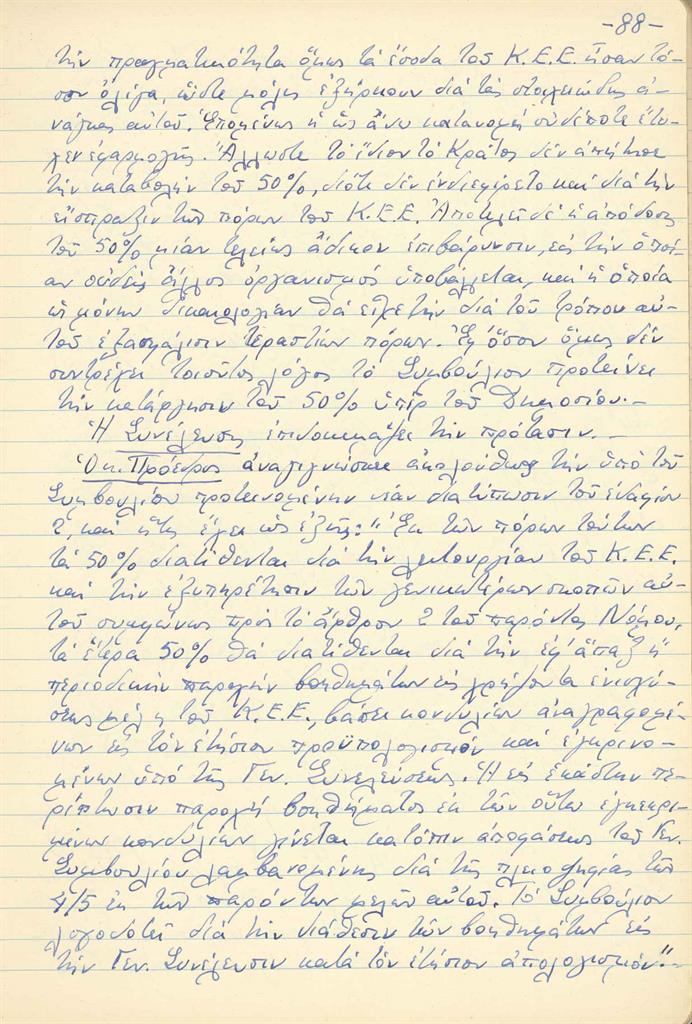 -88-
τὴν πραγματικότητα ὅμως τὰ ἔσοδα τοῦ Κ.Ε.Ε. ἦσαν τό-
σον ὀλίγα, ὥστε μόλις ἐξήρκουν διὰ τὰς στοιχειώδεις ἀ-
νάγκας αὐτοῦ. Ἑπομένως ἡ ὡς ἄνω κατανομὴ οὐδέποτε ἔτυ-
χεν ἐφαρμογῆς. Ἄλλωστε τὸ ἴδιον τὸ Κράτος δὲν ἀπῄτησε
τὴν καταβολὴν τοῦ 50%, διότι δὲν ἐνδιεφέρετο καὶ διὰ τὴν
εἴσπραξιν τῶν πόρων τοῦ Κ.Ε.Ε. Ἀποτελεῖ δὲ ἡ ἀπόδοσις
τοῦ 50% μίαν τελείως ἄδικον ἐπιβάρυνσιν, εἰς τὴν ὁποί-
αν οὐδεὶς ἄλλος ὀργανισμός ὑποβάλλεται, καὶ ἡ ὁποία
ὡς μόνην δικαιολογίαν θὰ εἶχε τὴν διὰ τοῦ τρόπου αὐ-
τοῦ ἐξασφάλισιν τεραστίων πόρων. Ἐφ' ὅσον ὅμως δέν
συντρέχει τοιοῦτος λόγος τὸ Συμβούλιον προτείνει
τὴν κατάργησιν τοῦ 50% ὑπὲρ τοῦ Δημοσίου.-
Ἡ Συνέλευσις ἐπιδοκιμάζει τὴν πρότασιν.-
Ὁ κ. Πρόεδρος ἀναγιγνώσκει ἀκολούθως τὴν ὑπὸ τοῦ
Συμβουλίου προτεινομένην νέαν διατύπωσιν τοῦ ἐδαφίου
2, καὶ ἥτις ἔχει ὡς ἑξῆς: "Ἐκ τῶν πόρων τούτων
τὰ 50% διατίθενται διὰ τὴν λειτουργίαν τοῦ Κ.Ε.Ε.
καὶ τὴν ἐξυπηρέτησιν τῶν γενικωτέρων σκοπῶν αὐ-
τοῦ συμφώνως πρὸς τὸ ἄρθρον 2 τοῦ παρόντος Νόμου,
τὰ ἕτερα 50% θὰ διατίθενται διὰ τὴν ἐφ' ἅπαξ ἢ
περιοδικὴν παροχὴν βοηθημάτων εἰς χρῄζοντα ἐνισχύ-
σεως μέλη τοῦ Κ.Ε.Ε., βάσει κονδυλίων ἀναγραφομέ-
νων εἰς τὸν ἐτήσιον προϋπολογισμόν καὶ ἐγκρινο-
μένων ὑπὸ τῆς Γεν. Συνελεύσεως. Ἡ εἰς ἑκάστην πε-
ρίπτωσιν παροχὴ βοηθήματος ἐκ τῶν οὕτω ἐγκεκρι-
μένων κονδυλίων γίνεται κατόπιν ἀποφάσεως τοῦ Γεν.
Συμβουλίου λαμβανομένης διὰ τῆς πλειοψηφίας τῶν
4/5 ἐκ τῶν παρόντων μελῶν αὐτοῦ. Τὸ Συμβούλιον
λογοδοτεῖ διὰ τὴν διάθεσιν τῶν βοηθημάτων εἰς
τὴν Γεν. Συνέλευσιν κατὰ τὸν ἐτήσιον ἀπολογισμόν."-